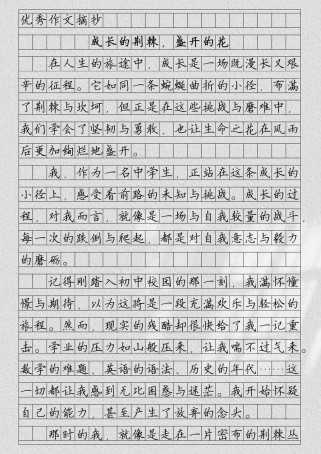 优秀作文摘抄
成长的荆棘，盛开的花
在人生的旅途中，成长是一场既漫长又艰
辛的征程。它如同一条蜿蜒曲折的小径，布满
了荆棘与坎坷，但正是在这些挑战与磨难中，
我们学会了坚韧与勇敢，也让生命之花在风雨
后更加绚烂地盛开。
我，作为一名中学生，正站在这条成长的
小径上，感受着前路的未知与挑战。成长的过
程，对我而言，就像是一场与自我较量的战斗，
每一次的跌倒与爬起，都是对自我意志与毅力
的磨砺。
记得刚踏入初中校园的那一刻，我满怀憧
憬与期待，以为这将是一段充满欢乐与轻松的
旅程。然而，现实的残酷却很快给了我一记重
击。学业的压力如山般压来，让我喘不过气来。
数学的难题、英语的语法、历史的年代……这
一切都让我感到无比困惑与迷茫。我开始怀疑
自己的能力，甚至产生了放弃的念头。
那时的我，就像是走在一片密布的荆棘丛